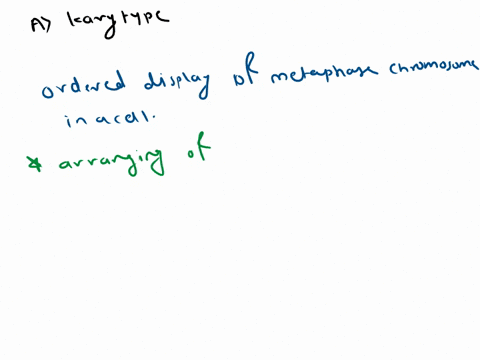 A) karytype
ordered display of metaphase chromosome
in a cell.
* arranging of